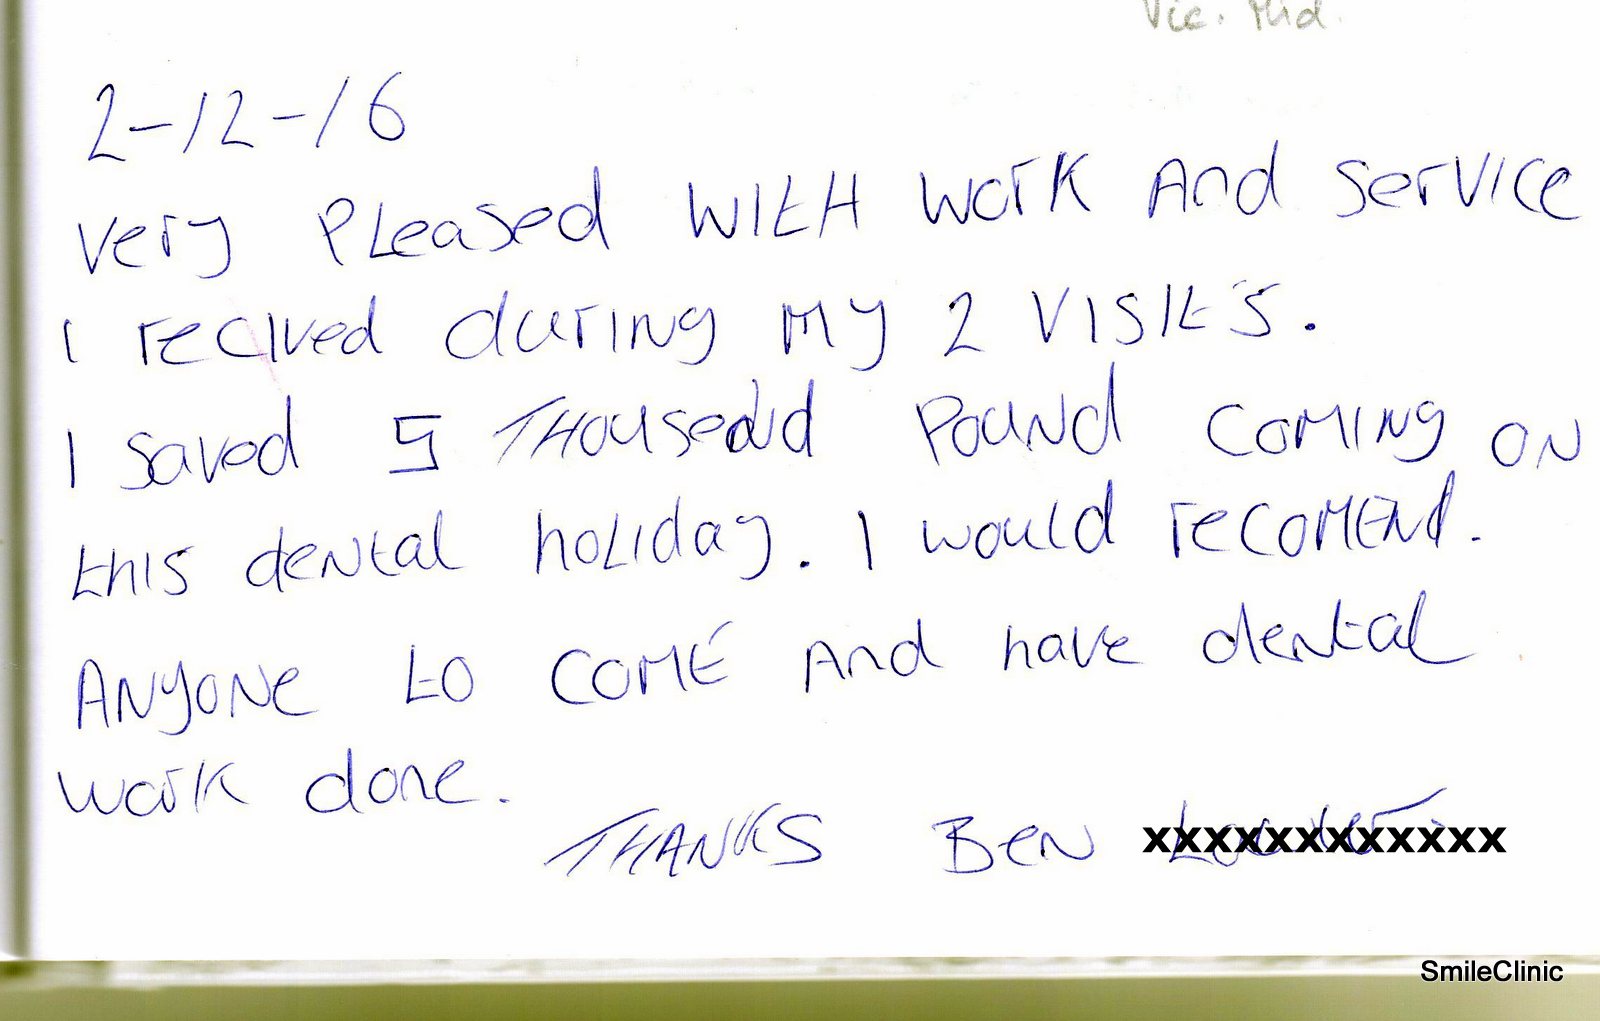 Vic. Mid.
2-12-16
Very Pleased With Work And Service
I recived during My 2 Visits.
I Saved 5 Thousednd Pound Coming on
this dental holiday. I would recomend.
Anyone to come And have dental
work done.
Thanks Ben xxxxxxxxxxxx
SmileClinic